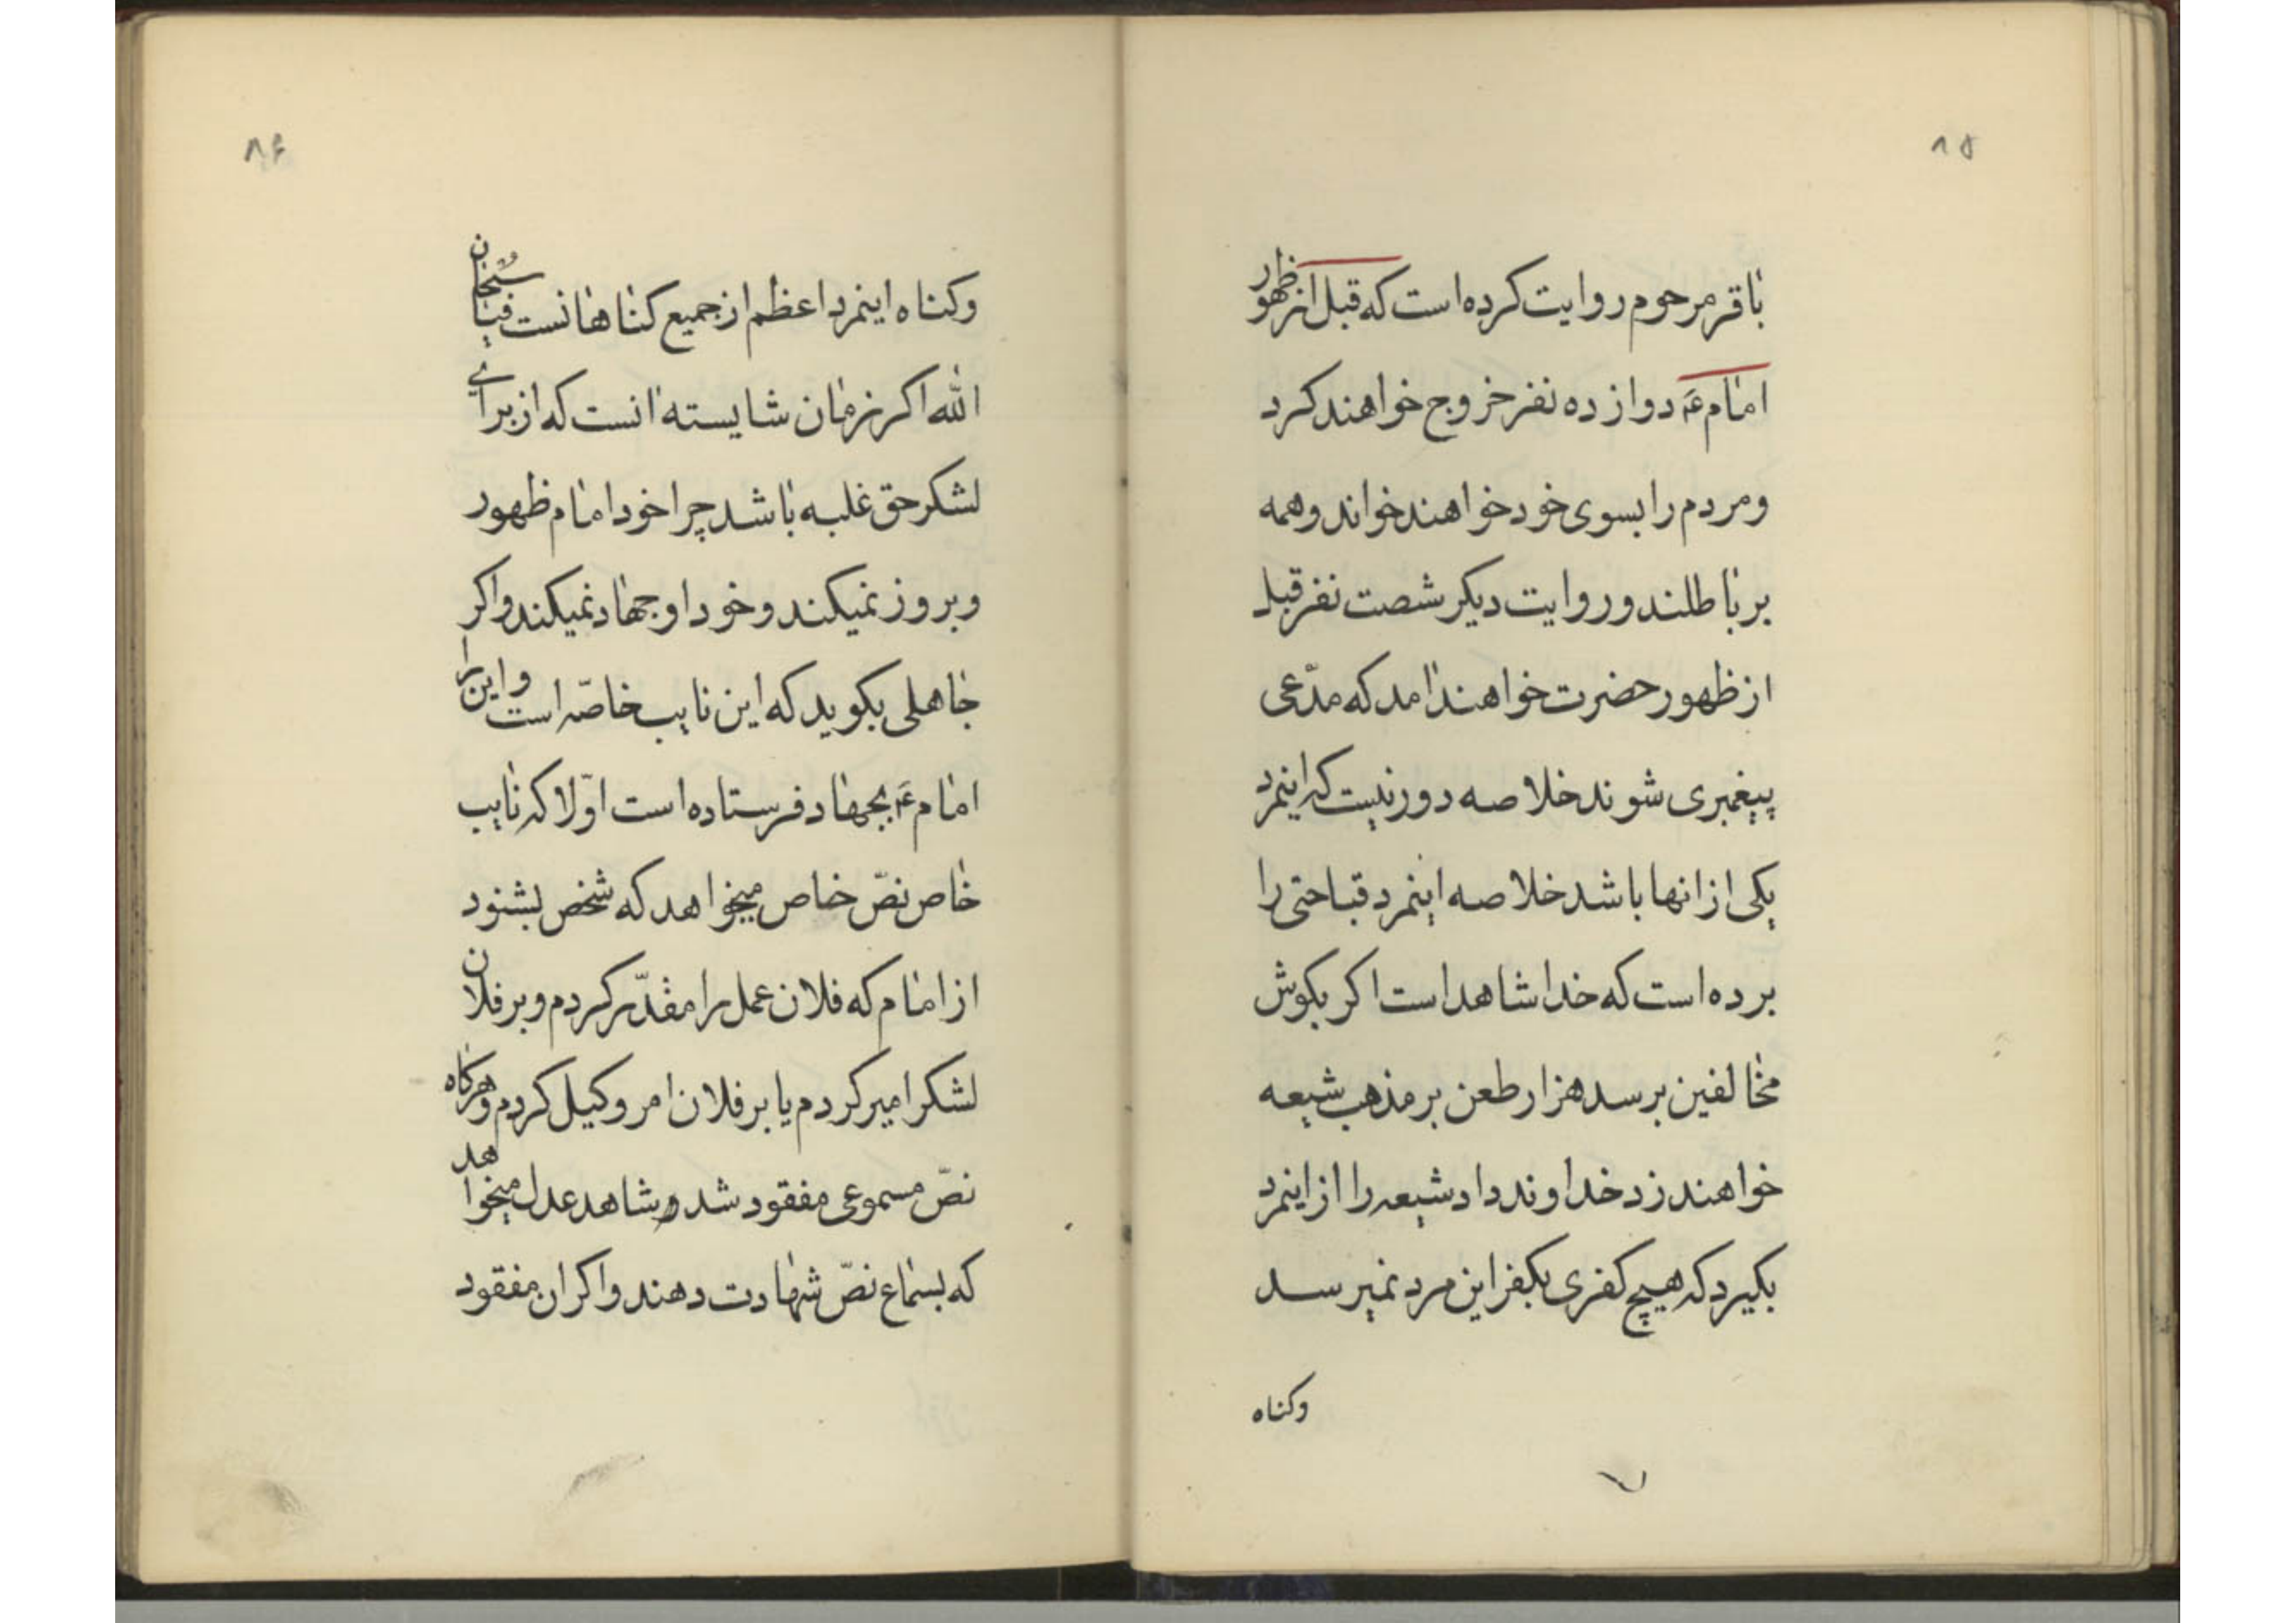 ۸۵
باقر مرحوم روایت کرده است که قبل از ظهور
امام ع دوازده نفر خروج خواهند کرد
و مردم را بسوی خود خواهند خواند و همه
بر باطلند و روایت دیکر شصت نفر قبل
از ظهور حضرت خواهند امد که مدّعی
پیغمبری شوند خلاصه دور نیست که اینمرد
یکی از انها باشد خلاصه اینمرد قباحتی را
برده است که خدا شاهد است اکر بکوش
مخالفین برسد هزار طعن بر مذهب شیعه
خواهند زد خداوند داد شیعه را از اینمرد
بکیرد که هیچ کفری بکفر این مرد نمیرسد
وکناه
۸۶
وکناه اینمرد اعظم از جمیع کناهانست فیا سُبحان
الله اکر زمان شایسته انست که از برای
لشکر حق غلبه باشد چرا خود امام ظهور
و بروز نمیکند و خود او جهاد نمیکند و اکر
جاهلی بکوید که این نایب خاصّه است و این را
امام ع بجهاد فرستاده است اوّلا که نایب
خاص نصّ خاص میخواهد که شخص بشنود
از امام که فلان عمل را مقدّر کردم و بر فلان
لشکر امیر کردم یا بر فلان امر وکیل کردم و هرکاه
نصّ مسموعی مفقود شد شاهد عدل میخواهد
که بسماع نصّ شهادت دهند و اکر ان مفقود